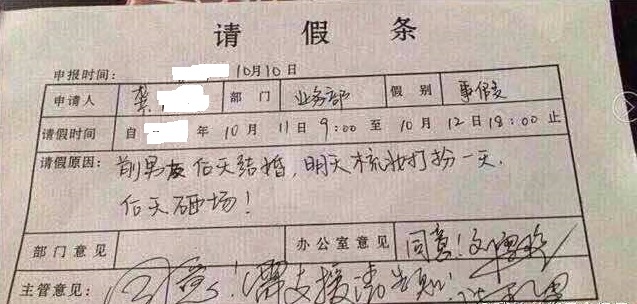 请假条
申报时间: 10月10日
申请人 龚 部门 业务部 假别 事假
请假时间 自 年 10月 11日 9:00 至 10月 12日 18:00 止
请假原因: 前男友后天结婚,明天梳妆打扮一天.
后天砸场!
部门意见 办公室意见 同意!
主管意见: 同意!需支援请告知!